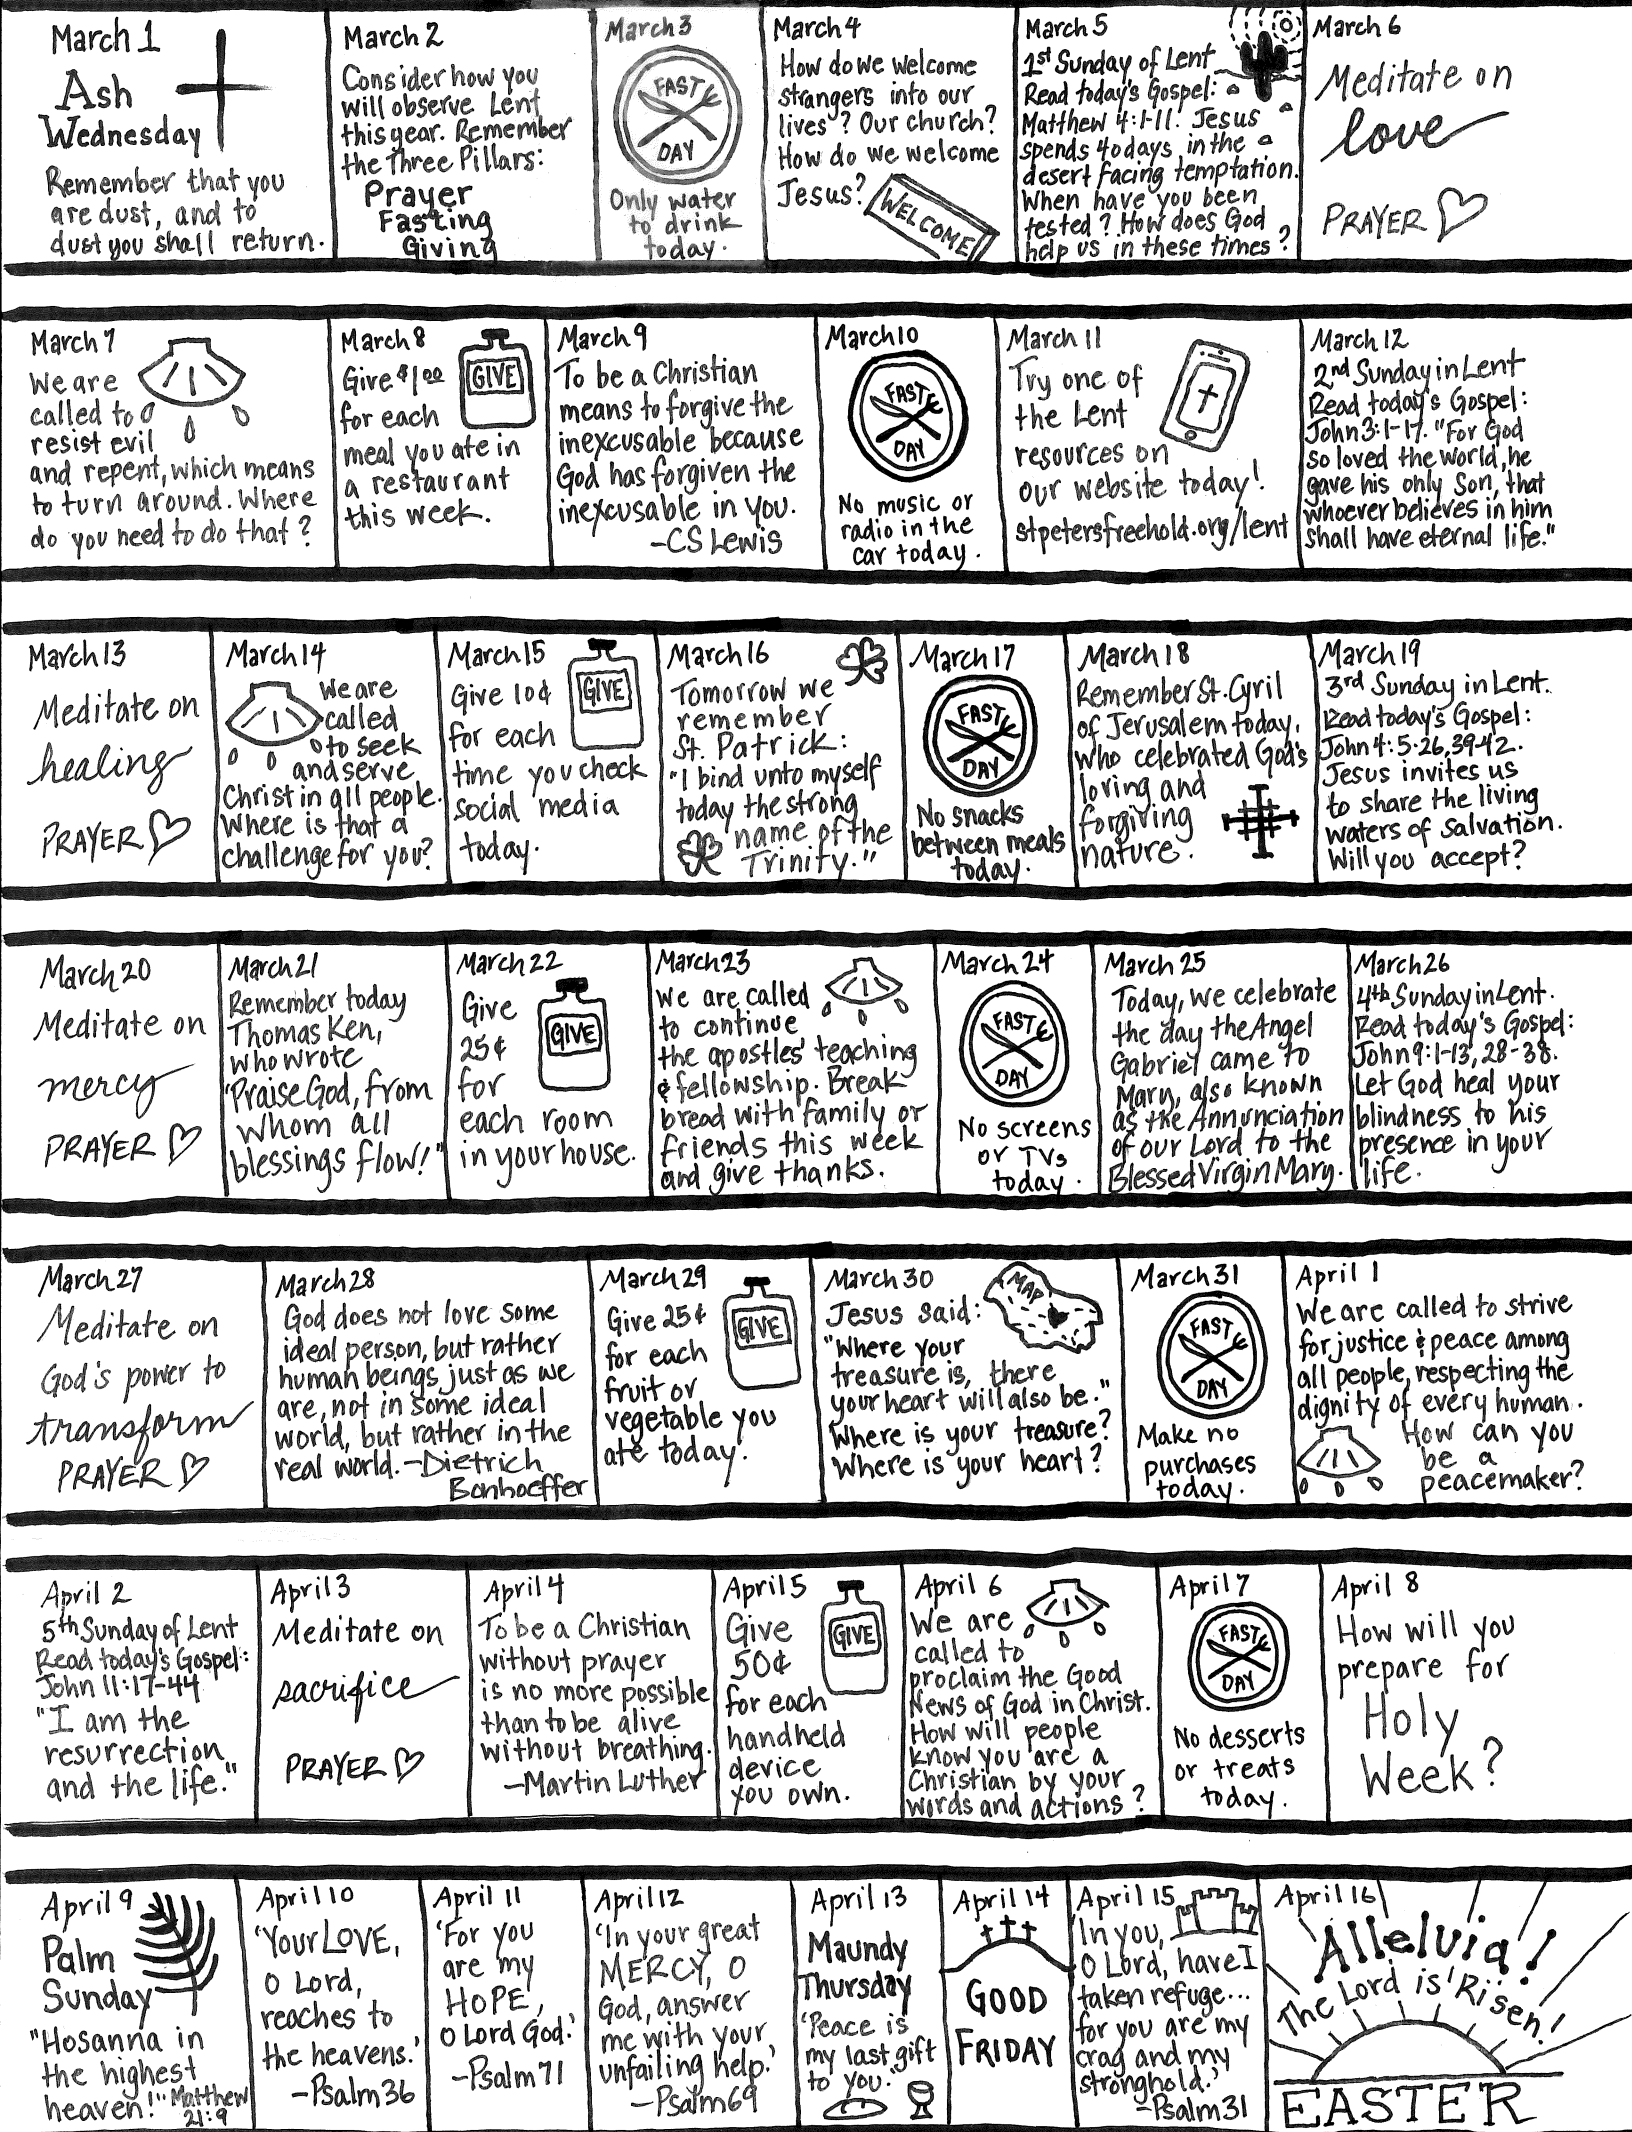 March 1
Ash
Wednesday
Remember that you
are dust, and to
dust you shall return.
March 2
Consider how you
will observe Lent
this year. Remember
the Three Pillars:
Prayer
Fasting
Giving
March 3
FAST
DAY
Only water
to drink
today.
March 4
How do we welcome
strangers into our
lives? Our church?
How do we welcome
Jesus?
WELCOME
March 5
1st Sunday of Lent
Read today's Gospel:
Matthew 4:1-11. Jesus
spends 40 days in the
desert facing temptation.
When have you been
tested? How does God
help us in these times?
March 6
Meditate on
love
PRAYER
March 7
We are
called to
resist evil
and repent, which means
to turn around. Where
do you need to do that?
March 8
Give $1.00
for each
meal you ate in
a restaurant
this week.
GIVE
March 9
To be a Christian
means to forgive the
inexcusable because
God has forgiven the
inexcusable in you.
-CS Lewis
March 10
FAST
DAY
No music or
radio in the
car today.
March 11
Try one of
the Lent
resources on
our website today!
stpetersfreehold.org/lent
March 12
2nd Sunday in Lent
Read today's Gospel:
John 3:1-17. "For God
so loved the world, he
gave his only Son, that
whoever believes in him
shall have eternal life."
March 13
Meditate on
healing
PRAYER
March 14
We are
called
to seek
and serve
Christ in all people.
Where is that a
challenge for you?
March 15
Give 10¢
for each
time you check
social media
today.
GIVE
March 16
Tomorrow we
remember
St. Patrick:
"I bind unto myself
today the strong
name of the
Trinity."
March 17
FAST
DAY
No snacks
between meals
today.
March 18
Remember St. Cyril
of Jerusalem today,
who celebrated God's
loving and
forgiving
nature.
March 19
3rd Sunday in Lent.
Read today's Gospel:
John 4:5-26,39-42.
Jesus invites us
to share the living
waters of salvation.
Will you accept?
March 20
Meditate on
mercy
PRAYER
March 21
Remember today
Thomas Ken,
who wrote
"Praise God, from
whom all
blessings flow!"
March 22
Give
25¢
for
each room
in your house.
GIVE
March 23
We are called
to continue
the apostles' teaching
& fellowship. Break
bread with family or
friends this week
and give thanks.
March 24
FAST
DAY
No screens
or TVs
today.
March 25
Today, we celebrate
the day the Angel
Gabriel came to
Mary, also known
as the Annunciation
of our Lord to the
Blessed Virgin Mary.
March 26
4th Sunday in Lent.
Read today's Gospel:
John 9:1-13, 28-38.
Let God heal your
blindness to his
presence in your
life.
March 27
Meditate on
God's power to
transform
PRAYER
March 28
God does not love some
ideal person, but rather
human beings just as we
are, not in some ideal
world, but rather in the
real world. -Dietrich
Bonhoeffer
March 29
Give 25¢
for each
fruit or
vegetable you
ate today.
GIVE
March 30
Jesus said:
"Where your
treasure is, there
your heart will also be."
Where is your treasure?
Where is your heart?
MAP
March 31
FAST
DAY
Make no
purchases
today.
April 1
We are called to strive
for justice & peace among
all people, respecting the
dignity of every human.
How can you
be a
peacemaker?
April 2
5th Sunday of Lent
Read today's Gospel:
John 11:17-44
"I am the
resurrection
and the life."
April 3
Meditate on
sacrifice
PRAYER
April 4
To be a Christian
without prayer
is no more possible
than to be alive
without breathing.
-Martin Luther
April 5
Give
50¢
for each
handheld
device
you own.
GIVE
April 6
We are
called to
proclaim the Good
News of God in Christ.
How will people
know you are a
Christian by your
words and actions?
April 7
FAST
DAY
No desserts
or treats
today.
April 8
How will you
prepare for
Holy
Week?
April 9
Palm
Sunday
"Hosanna in
the highest
heaven!" Matthew
21:9
April 10
'Your LOVE,
O Lord,
reaches to
the heavens.'
-Psalm 36
April 11
'For you
are my
HOPE,
O Lord God.'
-Psalm 71
April 12
'In your great
MERCY, O
God, answer
me with your
unfailing help.'
-Psalm 69
April 13
Maundy
Thursday
'Peace is
my last gift
to you.'
April 14
GOOD
FRIDAY
April 15
'In you,
O Lord, have I
taken refuge...
for you are my
crag and my
stronghold.'
-Psalm 31
April 16
Alleluia!
The Lord is Risen!
EASTER